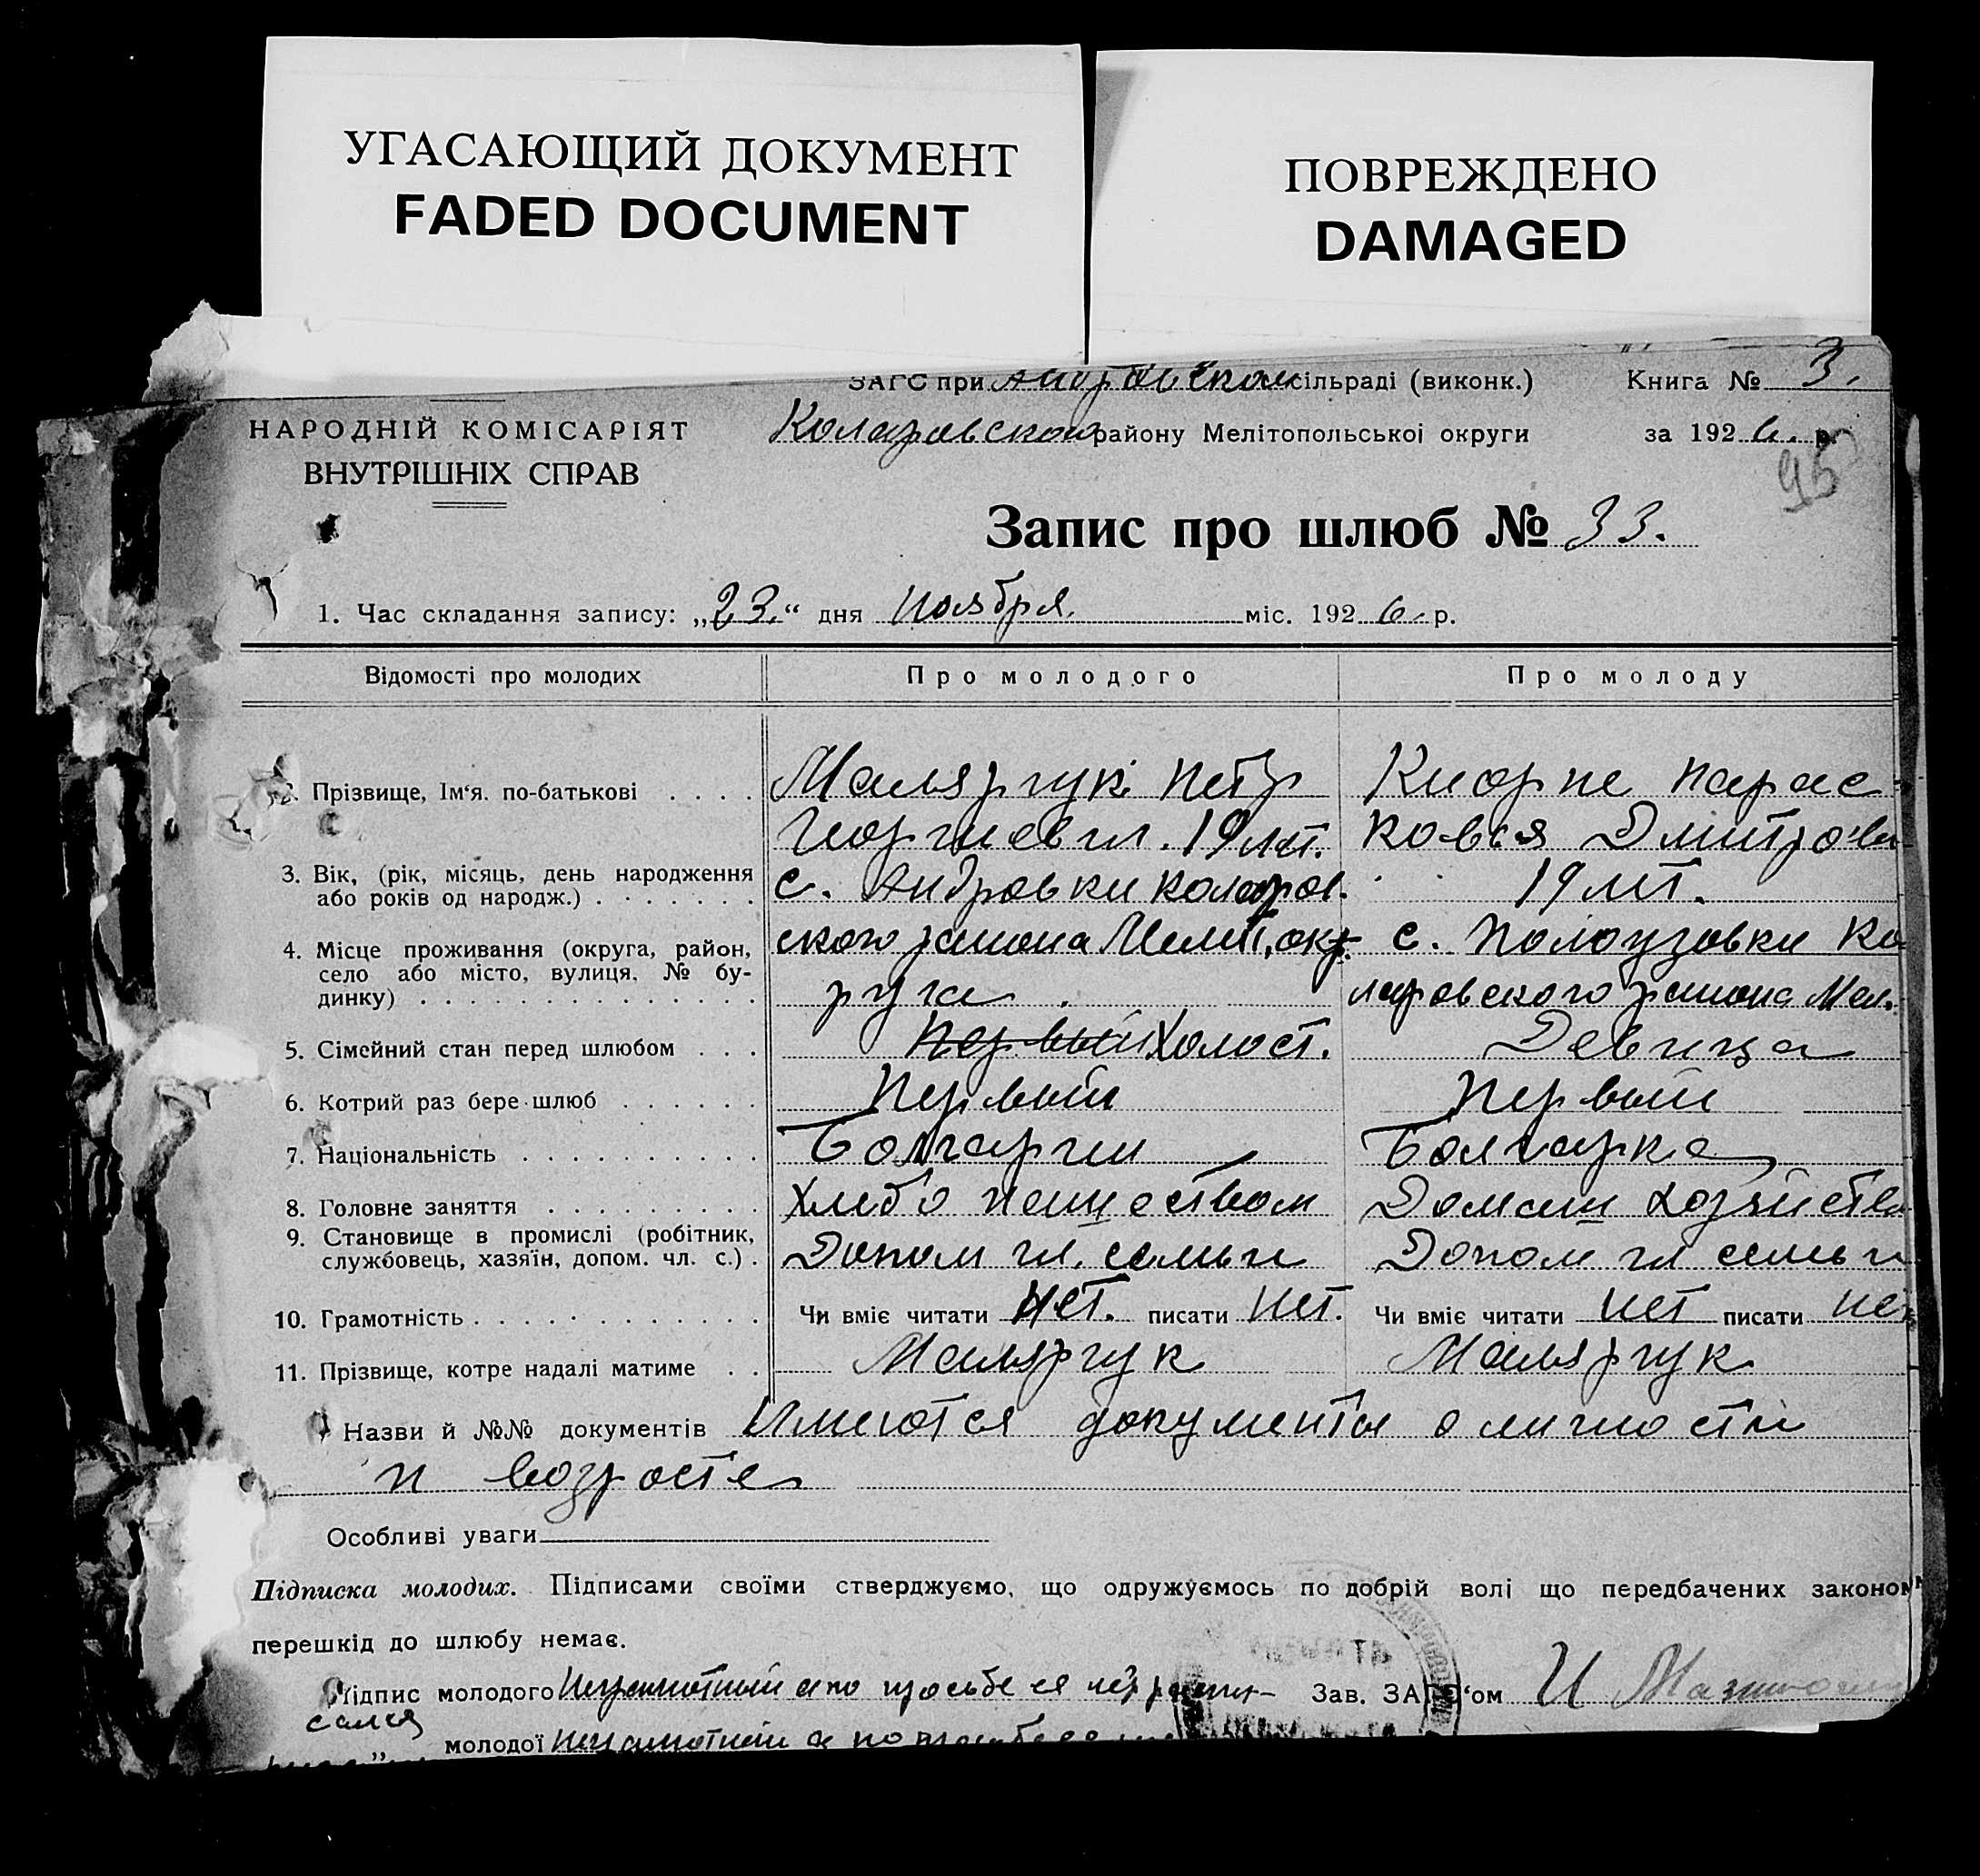 УГАСАЮЩИЙ ДОКУМЕНТ
FADED DOCUMENT
ПОВРЕЖДЕНО
DAMAGED
ЗАГС при Андровском сільраді (виконк.) Книга № 3.
НАРОДНІЙ КОМІСАРІЯТ
ВНУТРІШНІХ СПРАВ
Коларовского району Мелітопольської округи за 1926. р.
95
Запис про шлюб № 33.
1. Час складання запису: „23.“ дня ноября. міс. 1926. р.
Відомості про молодих Про молодого Про молоду
2. Прізвище, Ім‘я. по-батькові Малярчук Петр Киорпе Парас-
Георгиевич. 19 лет. ковья Дмитровн
3. Вік, (рік, місяць, день народження
або років од народж.) с. Андровки Коларов. 19 лет.
4. Місце проживання (округа, район,
село або місто, вулиця, № бу-
динку) ского района Мелит. ок- с. Полоузовки Ко
руга. ларовского района Мел.
5. Сімейний стан перед шлюбом Первый Холост. Девица
6. Котрий раз бере шлюб Первый Первый
7. Національність Болгарин Болгарка
8. Головне заняття Хлебопашеством Домаш хозяйство
9. Становище в промислі (робітник,
службовець, хазяїн, допом. чл. с.) Допом чл. семьи Допом чл семьи
10. Грамотність Чи вміє читати Нет. писати Нет. Чи вміє читати Нет писати Нет
11. Прізвище, котре надалі матиме Малярчук Малярчук
Назви й №№ документів Имеются документы о личности
и возрасте
Особливі уваги
Підписка молодих. Підписами своїми стверджуємо, що одружуємось по добрій волі що передбачених законом
перешкід до шлюбу немає.
Підпис молодого Неграмотный а по просьбе Зав. ЗАГС‘ом И
молодої Неграмотный а по просьбе ее